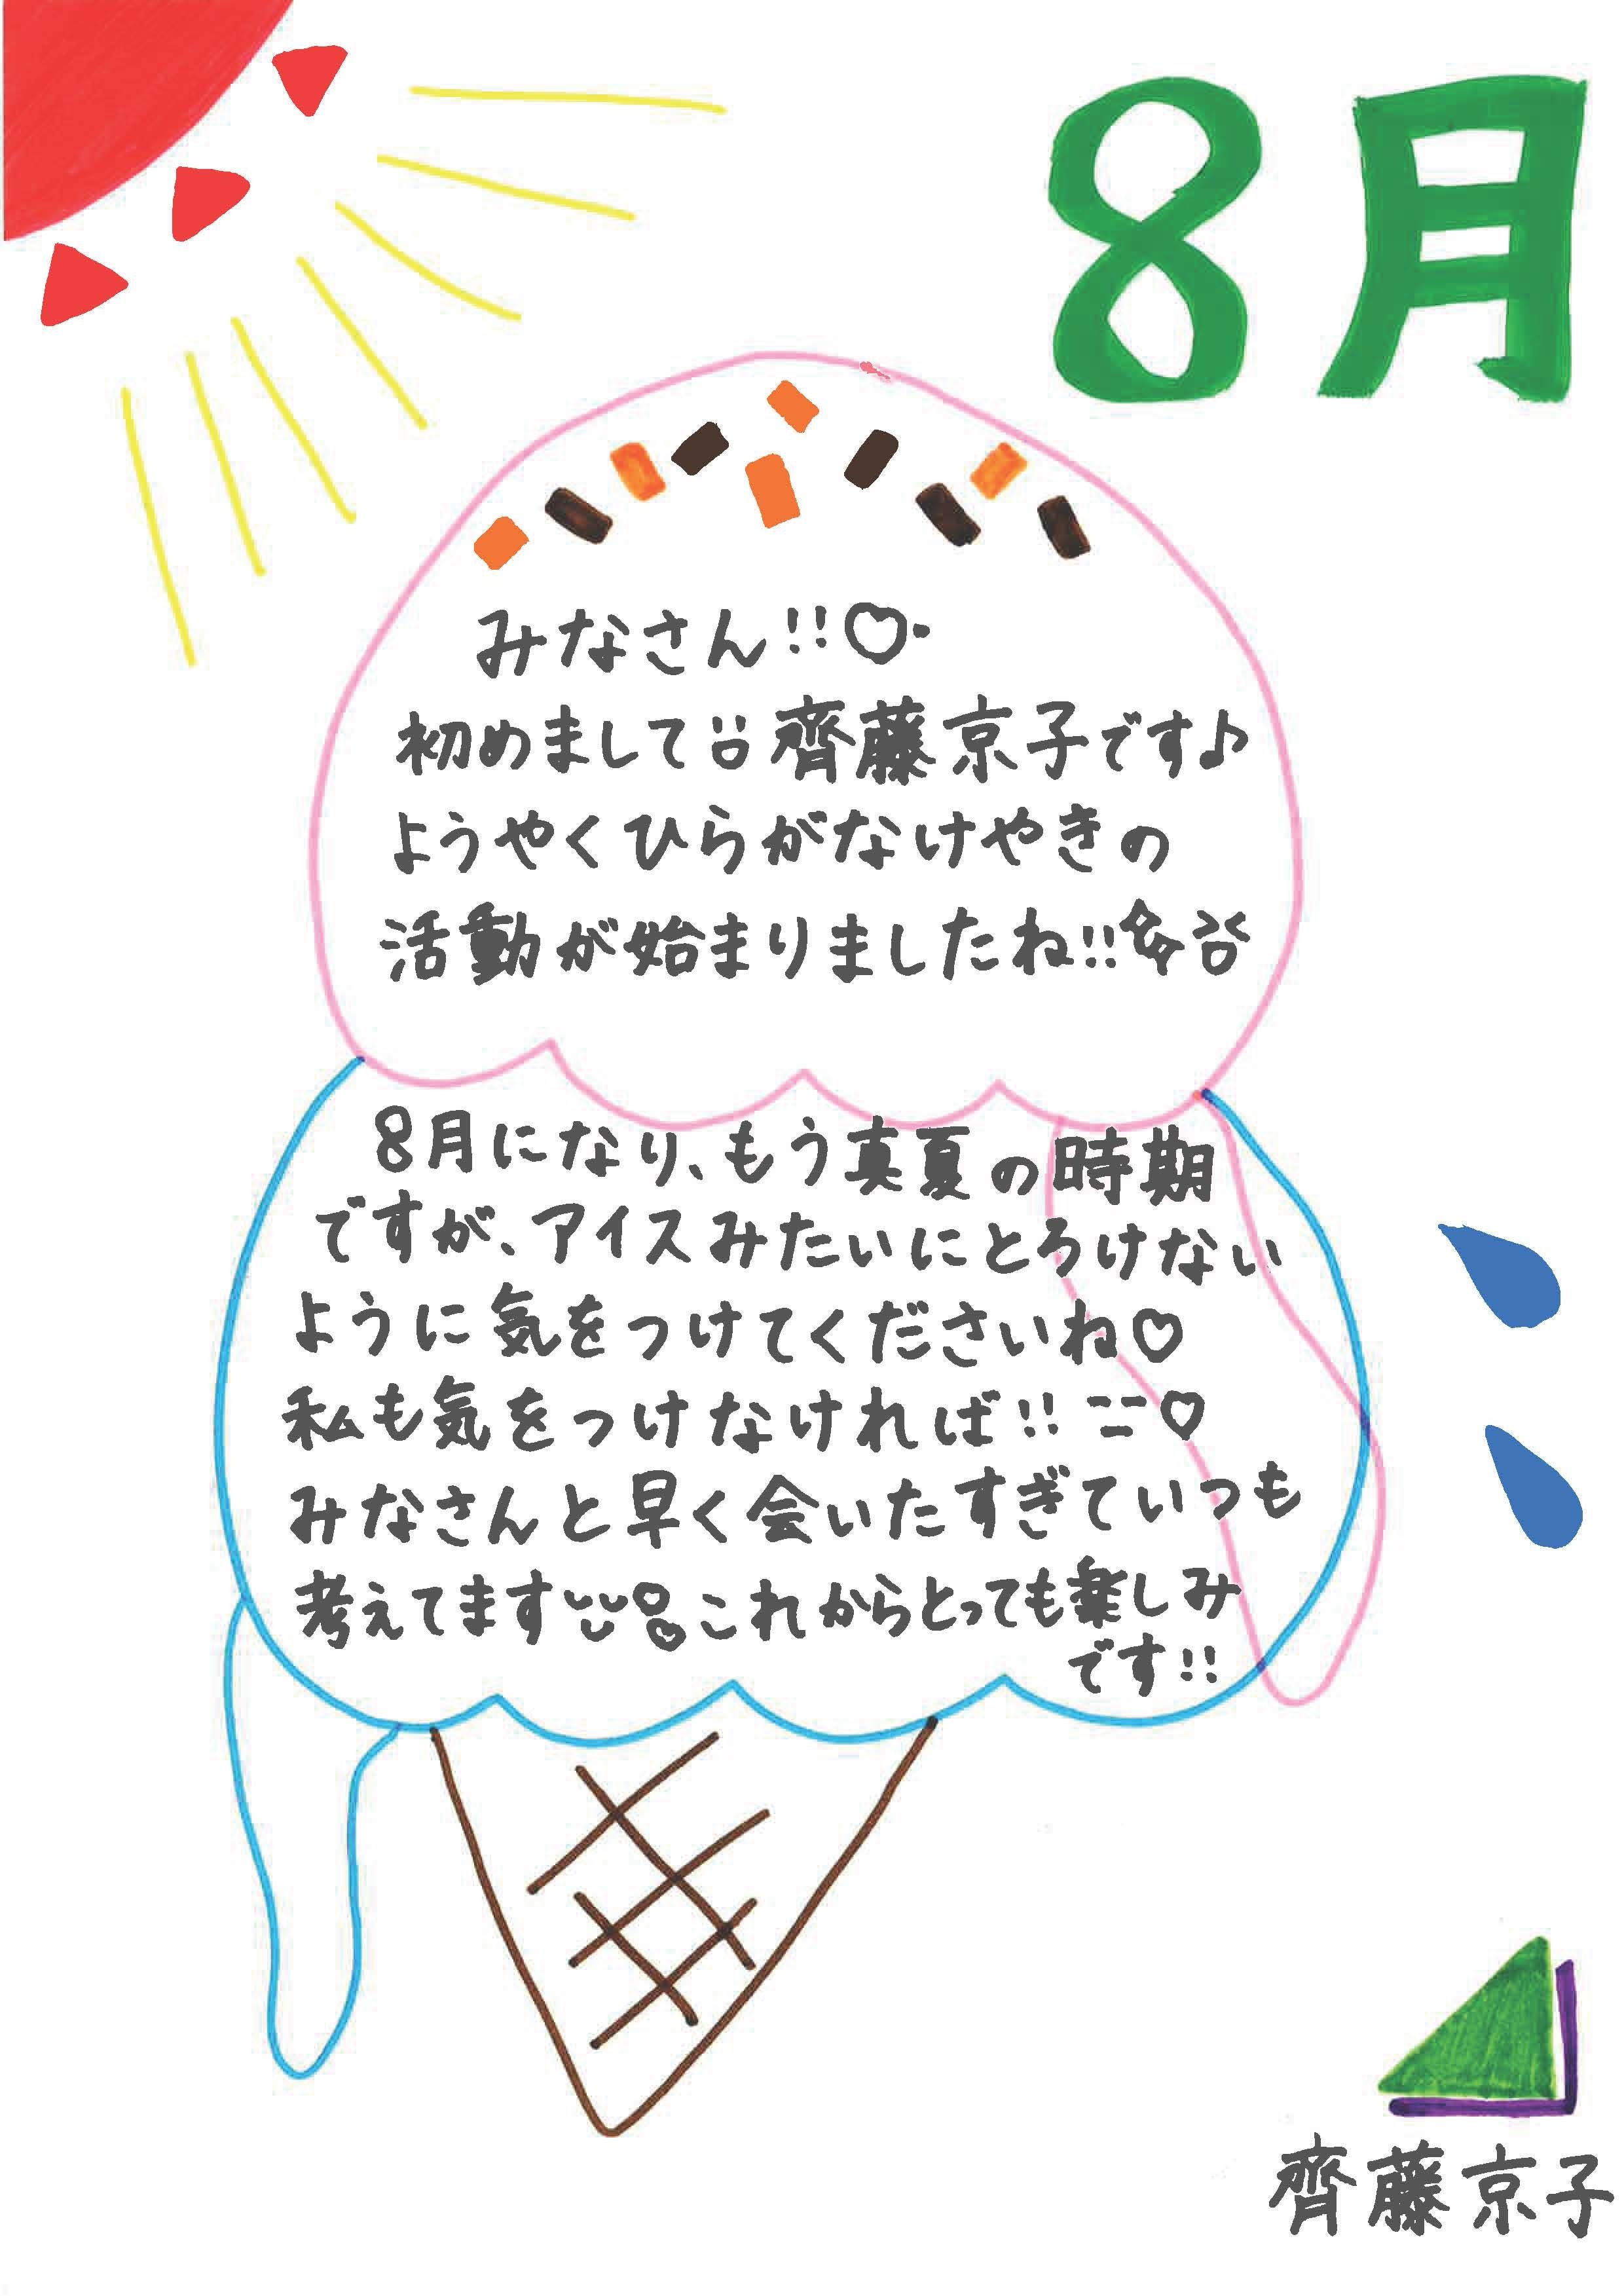 8月
みなさん!!♡
初めまして 齊藤京子です♪
ようやくひらがなけやきの
活動が始まりましたね!!
8月になり、もう真夏の時期
ですが、アイスみたいにとろけない
ように気をつけてくださいね♡
私も気をつけなければ!! ♡
みなさんと早く会いたすぎていつも
考えてます これからとっても楽しみ
です!!
齊藤京子